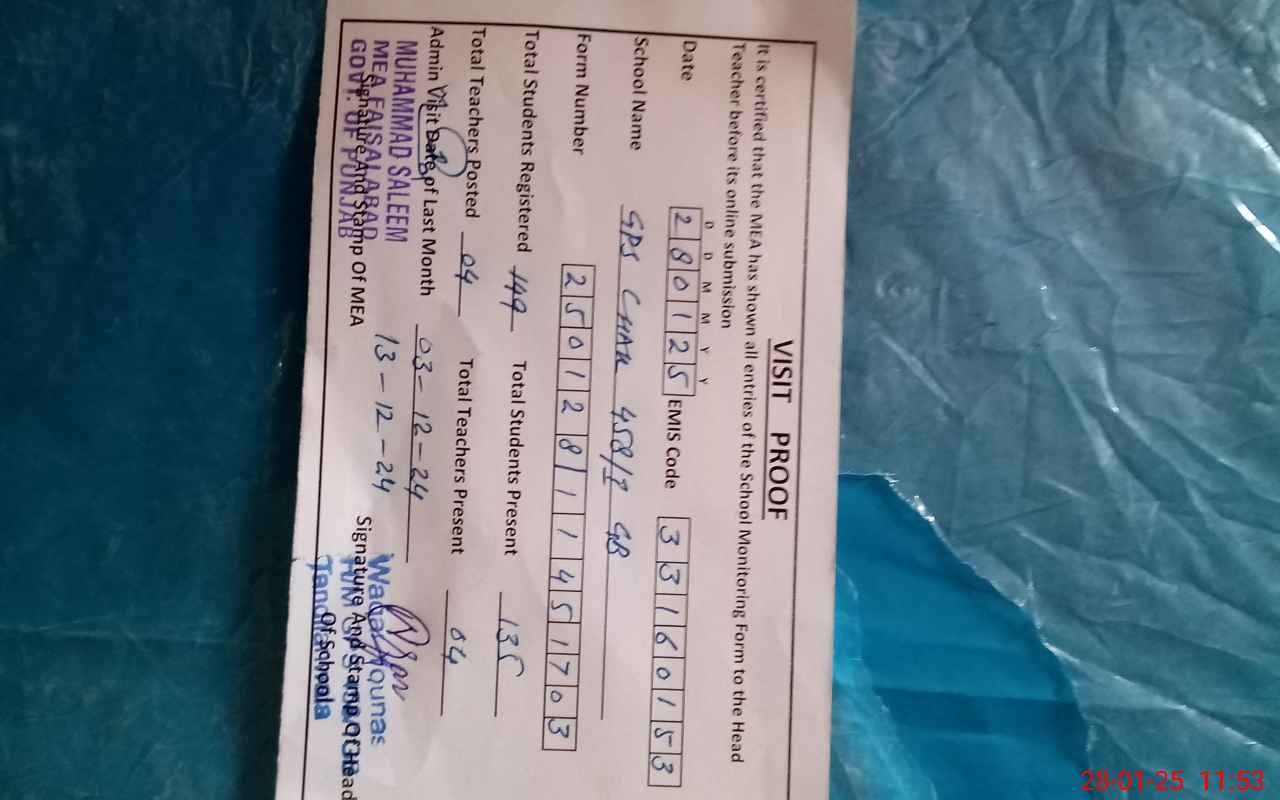 VISIT PROOF
It is certified that the MEA has shown all entries of the School Monitoring Form to the Head
Teacher before its online submission
D D M M Y Y
Date 2 8 0 1 2 5 EMIS Code 3 3 1 6 0 1 5 3
School Name GPS CHAK 458/ GB
Form Number 2 5 0 1 2 8 1 1 4 5 1 7 0 3
Total Students Registered 149 Total Students Present 135
Total Teachers Posted 04 Total Teachers Present 04
Admin Visit Date of Last Month 03-12-24
13-12-24
MUHAMMAD SALEEM
MEA FAISALABAD
GOVT. OF PUNJAB
Signature And Stamp Of MEA
Signature And Stamp Of Head
Of School
28-01-25 11:53